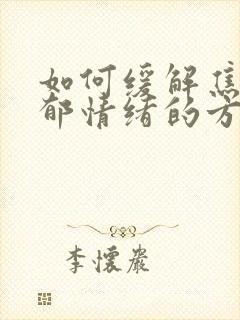 如何缓解焦
郁情绪的方
李怀岩